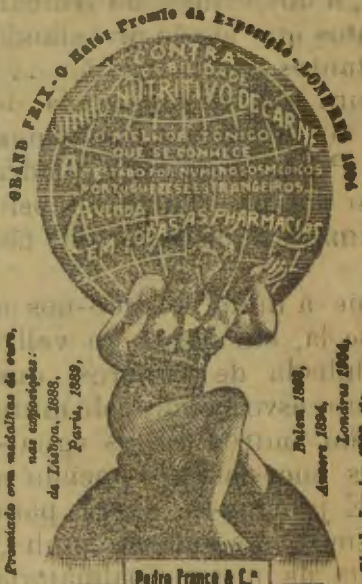 GRAND PRIX - O Maior Premio da Exposição - LONDRES 1904
CONTRA
DEBILIDADE
VINHO NUTRITIVO DE CARNE
O MELHOR TONICO
QUE SE CONHECE
ATTESTADO POR NUMEROSOS MEDICOS
PORTUGUEZES E ESTRANGEIROS
A VENDA
EM TODAS AS PHARMACIAS
Premiado com medalhas de ouro,
nas exposições:
de Lisboa, 1888,
Paris, 1889,
Belem 1890,
Anvers 1894,
Londres 1904,
Pedro Franco & C.ª